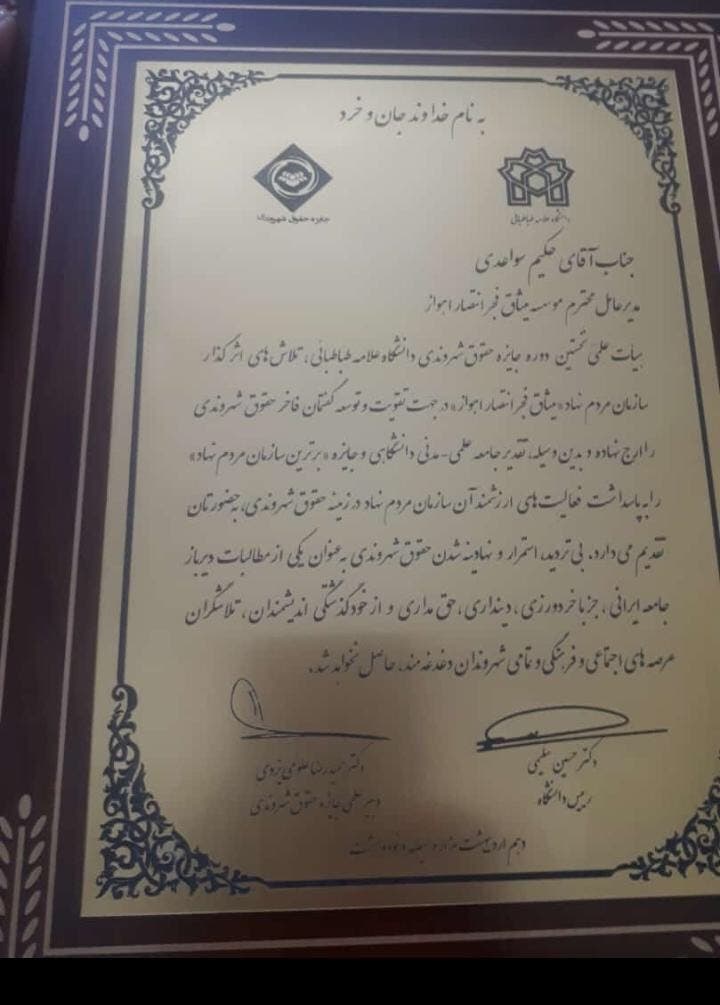 به نام خداوند جان و خرد
جایزه حقوق شهروندی
دانشگاه علامه طباطبائی
جناب آقای حکیم سواعدی
مدیرعامل محترم موسسه میثاق فجر انتصار اهواز
هیأت علمی نخستین دوره جایزه حقوق شهروندی دانشگاه علامه طباطبائی، تلاش های اثرگذار
سازمان مردم نهاد «میثاق فجر انتصار اهواز» در جهت تقویت و توسعه گفتمان فاخر حقوق شهروندی
را ارج نهاده و بدین وسیله، تقدیر جامعه علمی-مدنی دانشگاهی و جایزه «برترین سازمان مردم نهاد»
را به پاسداشت فعالیت های ارزشمند آن سازمان مردم نهاد در زمینه حقوق شهروندی، به حضورتان
تقدیم می دارد. بی تردید، استمرار و نهادینه شدن حقوق شهروندی به عنوان یکی از مطالبات دیرباز
جامعه ایرانی، جز با خردورزی، دینداری، حق مداری و از خودگذشتگی اندیشمندان، تلاشگران
عرصه های اجتماعی و فرهنگی و تمامی شهروندان دغدغه مند، حاصل نخواهد شد.
دکتر حسین سلیمی
رییس دانشگاه
دکتر حمیدرضا علومی یزدی
دبیر علمی جایزه حقوق شهروندی
دهم اردیبهشت هزار و سیصد و نود و هشت